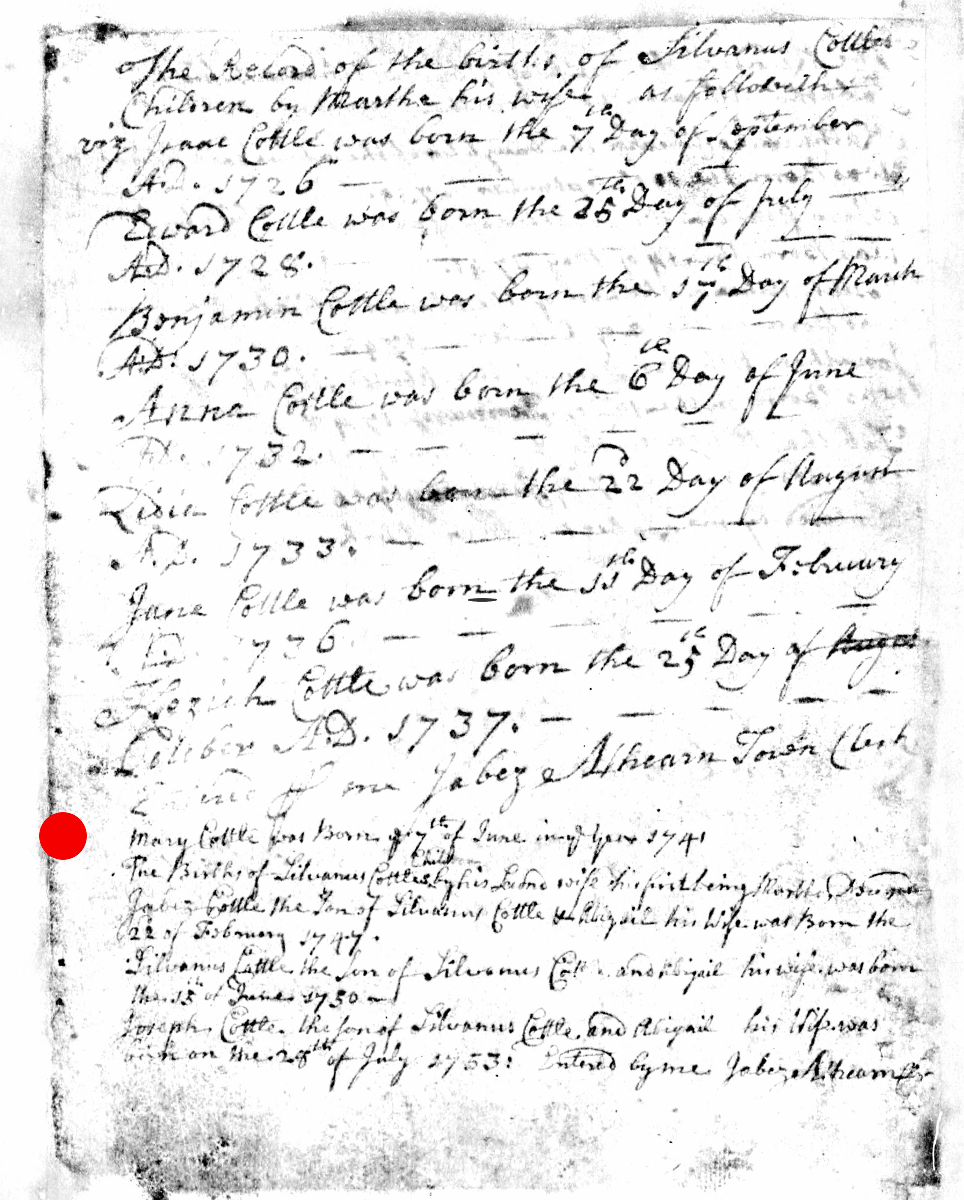 The Record of the births of Silvanus Cottles
Children by Martha his wife as followeth
viz Isaac Cottle was born the 7th Day of September
A.D. 1726
Edward Cottle was born the 25th Day of July
A.D. 1728.
Benjamin Cottle was born the 17th Day of March
A.D. 1730.
Anna Cottle was born the 6th Day of June
A.D. 1732.
Cottle was born the 22d Day of August
A.D. 1733.
Jane Cottle was born the 11th Day of February
A.D. 1736
Cottle was born the 25th Day of
October A.D. 1737.
Entered me Jabez Athearn Town Clerk
Mary Cottle was Born ye 7th of June in ye Year 1741
The Births of Silvanus Cottles Children by his Second wife his first being Martha
Jabez Cottle the Son of Silvanus Cottle & Abigail his Wife was Born the
22 of February 1747.
Silvanus Cottle the Son of Silvanus Cottle and Abigail his wife was born
the 15th of June 1750
Joseph Cottle the son of Silvanus Cottle and Abigail his Wife was
born on the 28th of July 1753: Entered by me Jabez Athearn